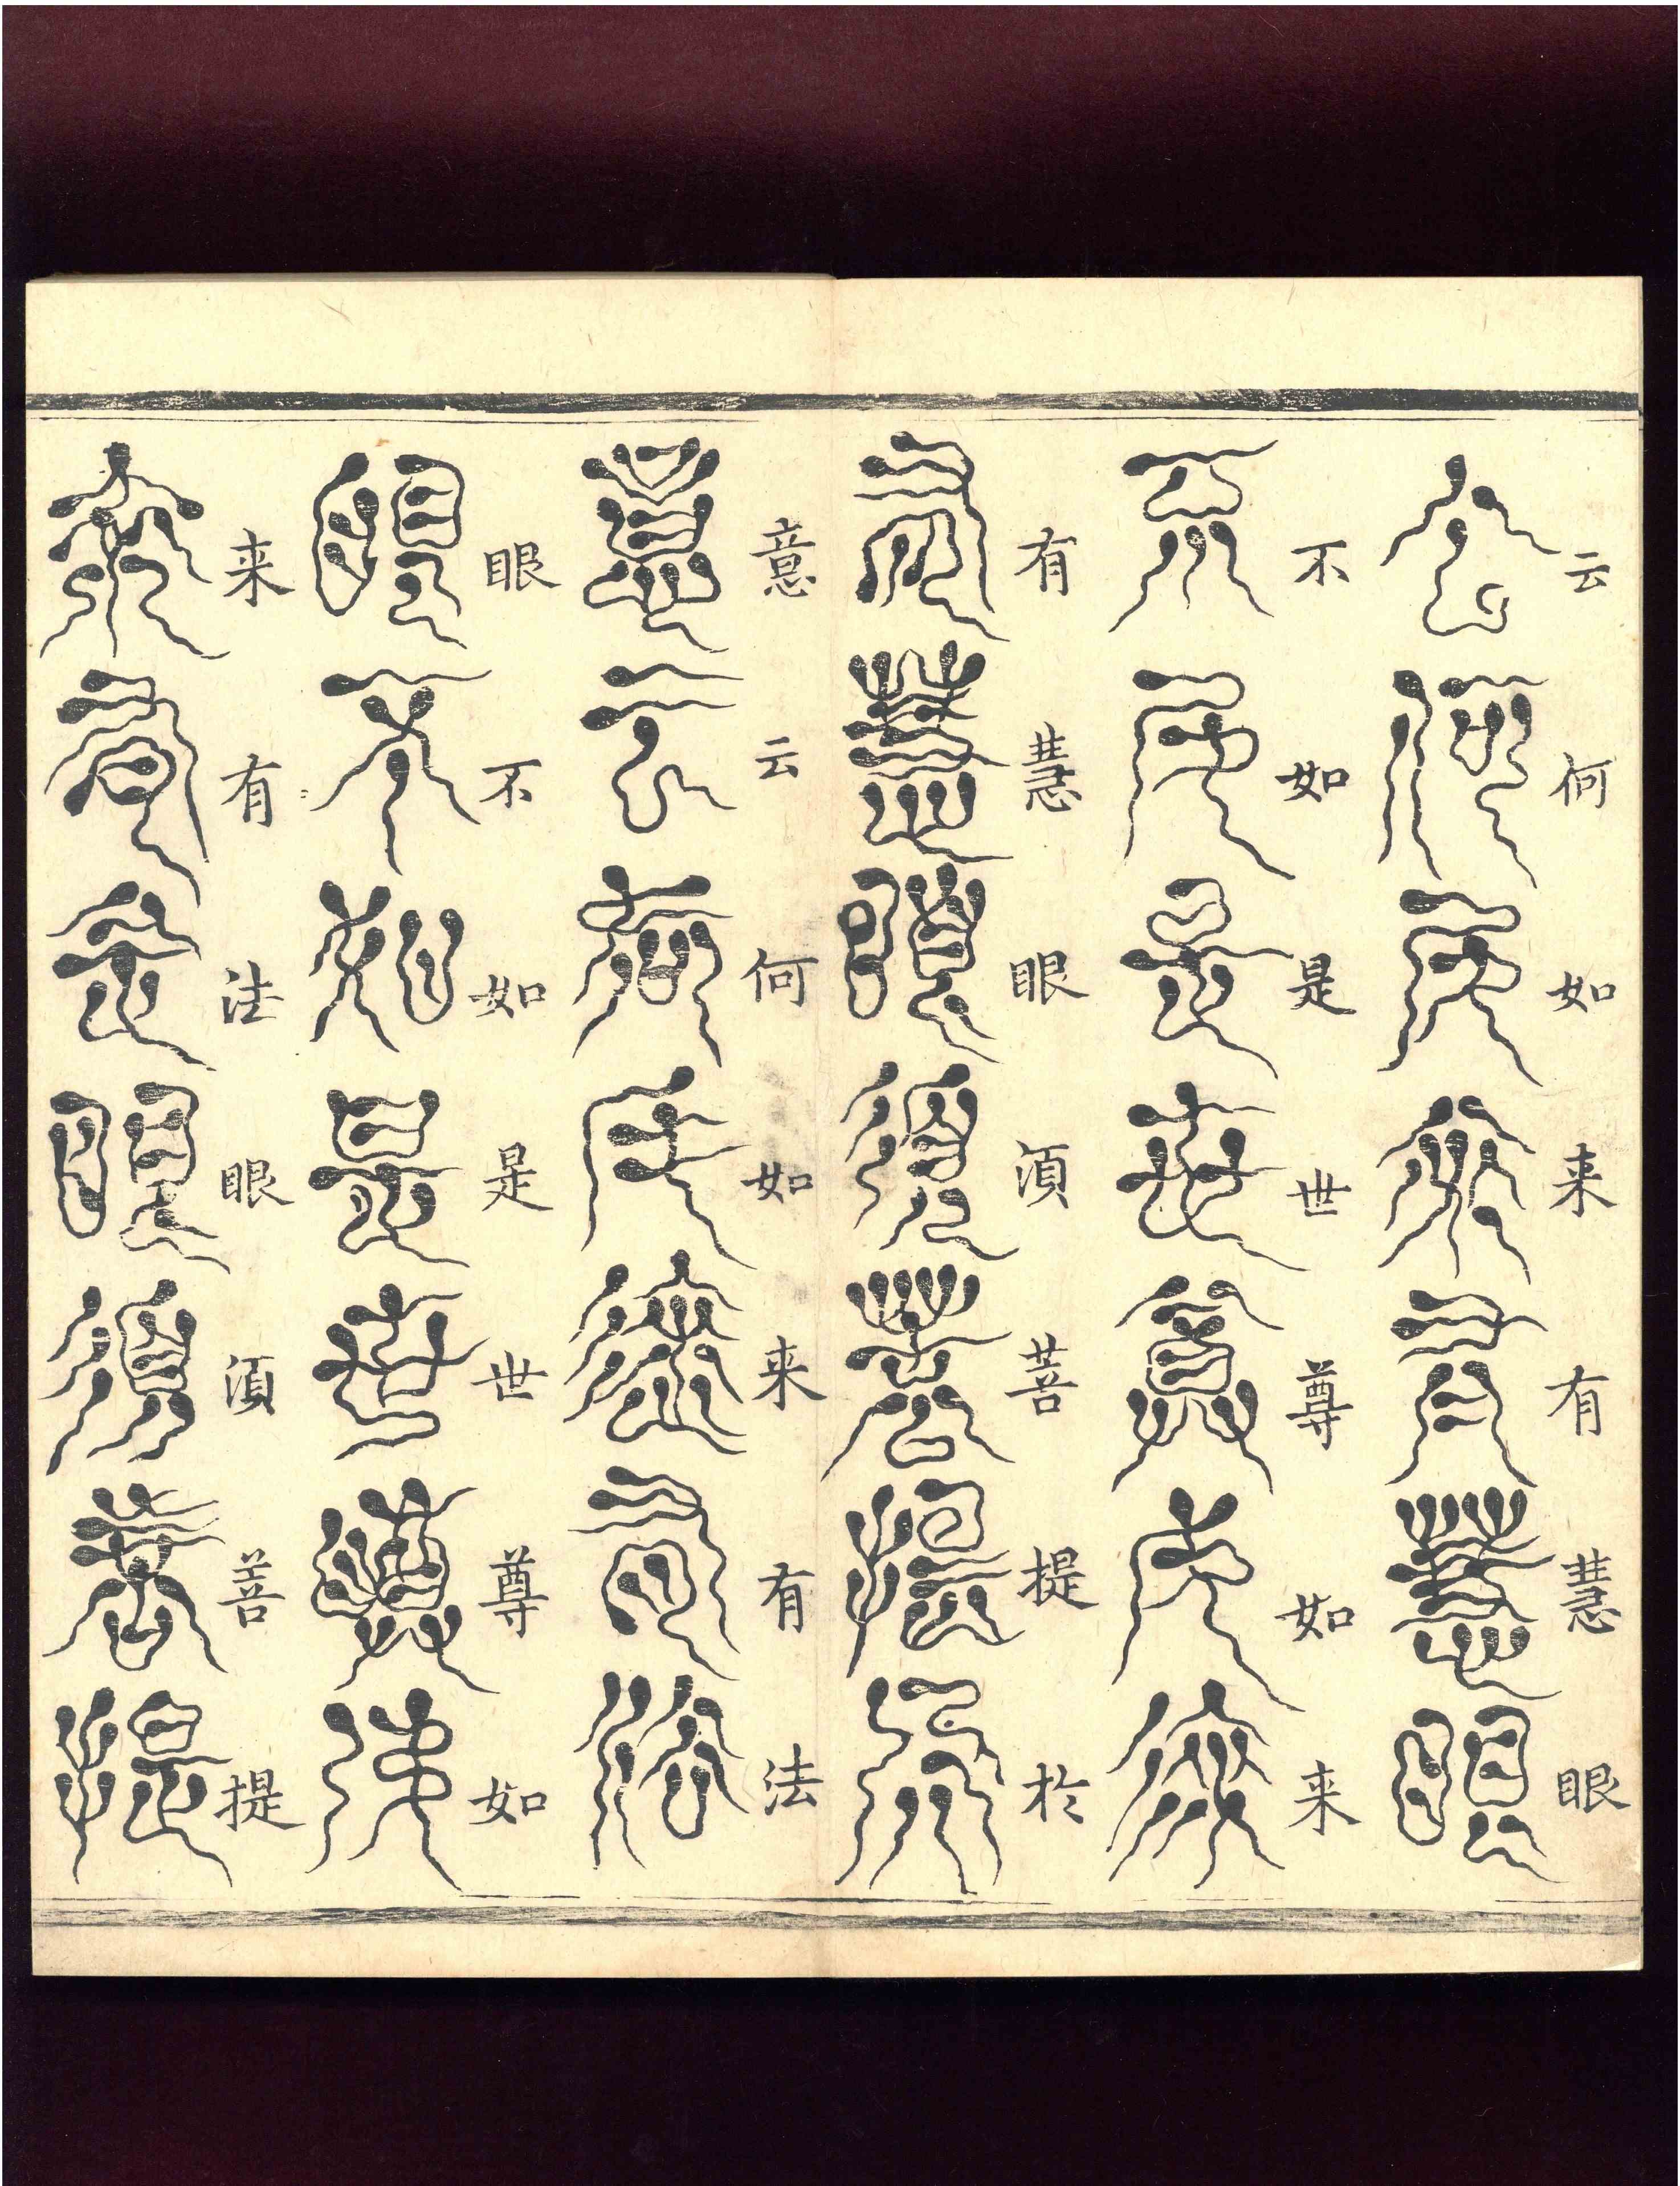 云何如来有慧眼
不如是世尊如来
有慧眼湏菩提扵
意云何如来有法
眼不如是世尊如
来有法眼湏菩提